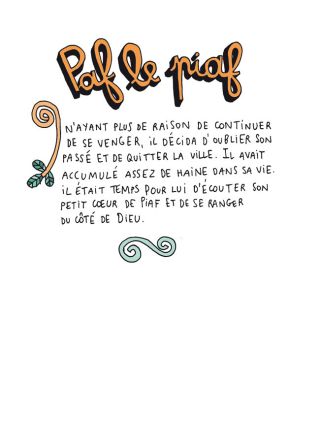 Paf le piaf
N'AYANT PLUS DE RAISON DE CONTINUER
DE SE VENGER, iL DÉCIDA D'OUBLIER SON
PASSÉ ET DE QUITTER LA VILLE. IL AVAIT
ACCUMULÉ ASSEZ DE HAINE DANS SA VIE.
iL ÉTAIT TEMPS POUR LUI D'ÉCOUTER SON
PETIT CŒUR DE PIAF ET DE SE RANGER
DU CÔTÉ DE DIEU.